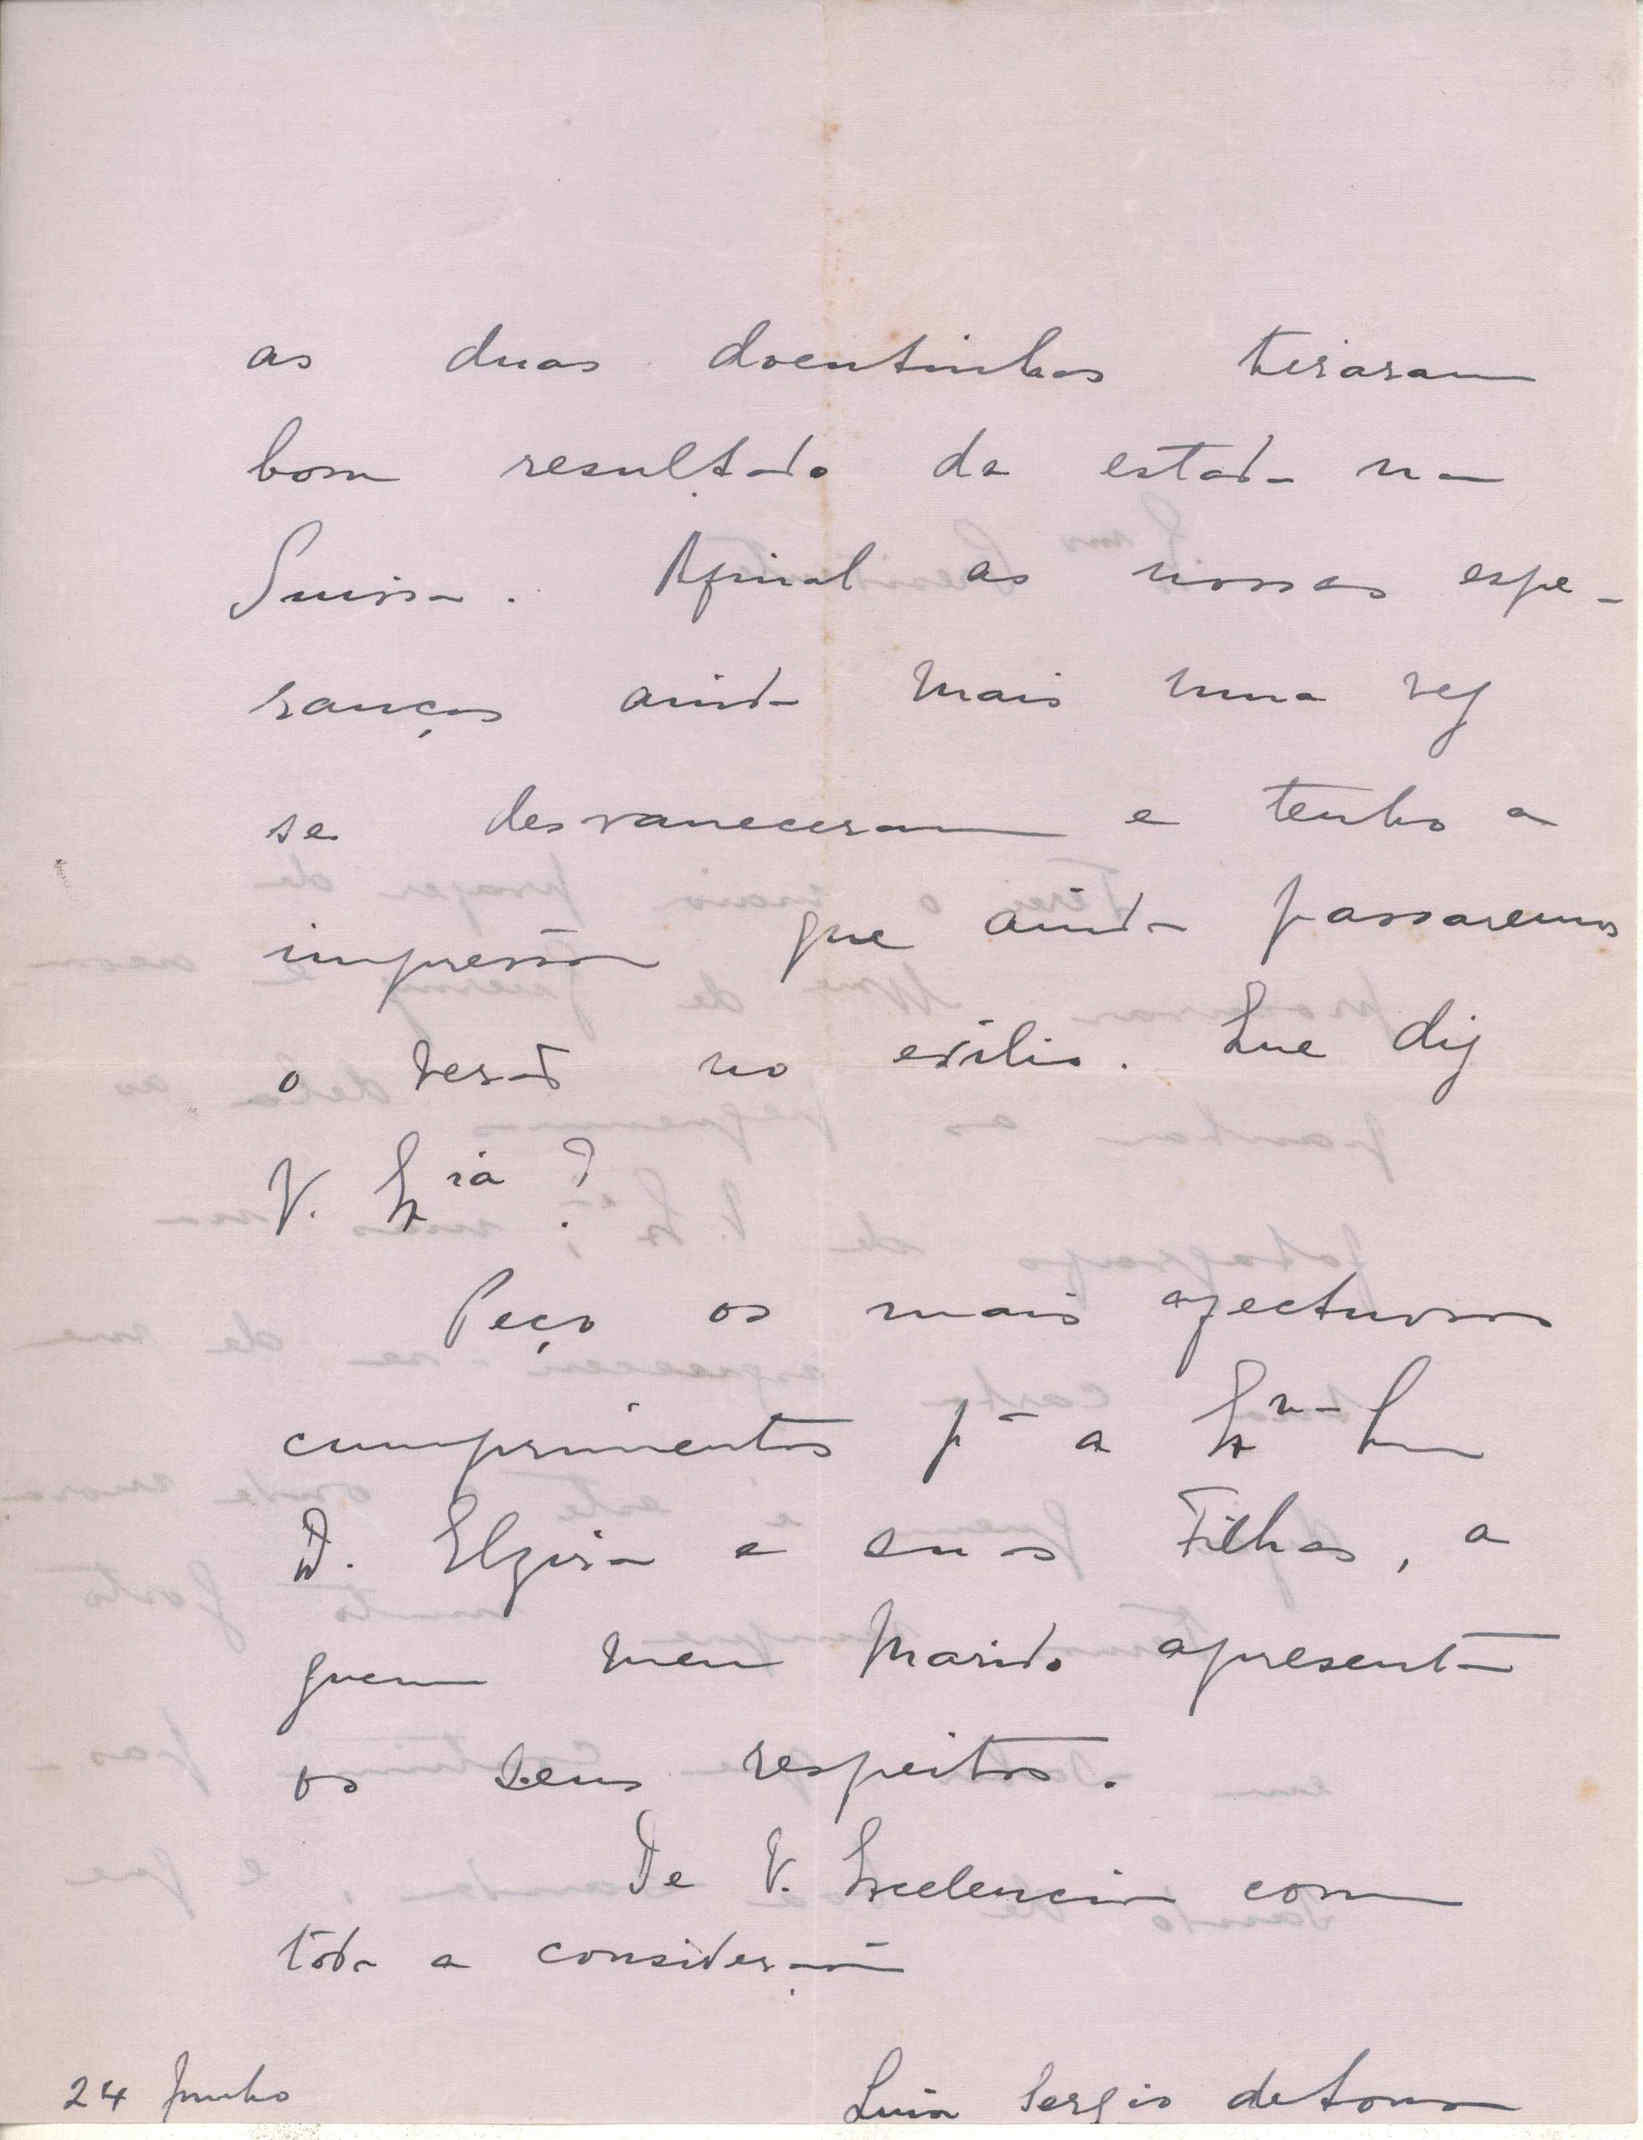 as duas doentinhas tiraram
bom resultado da estada na
Suissa. Afinal as nossas espe-
ranças ainda mais uma vez
se desvaneceram e tenho a
impressão que ainda passaremos
o verão no exilio. Que diz
V. Exia?
Peço os mais afectuosos
cumprimentos pa a Exma Sra
D. Elzira e suas Filhas, a
quem meu Marido apresenta
os seus respeitos.
De V. Excelencia com
toda a consideração
24 Junho
Luisa Sergio de Sousa